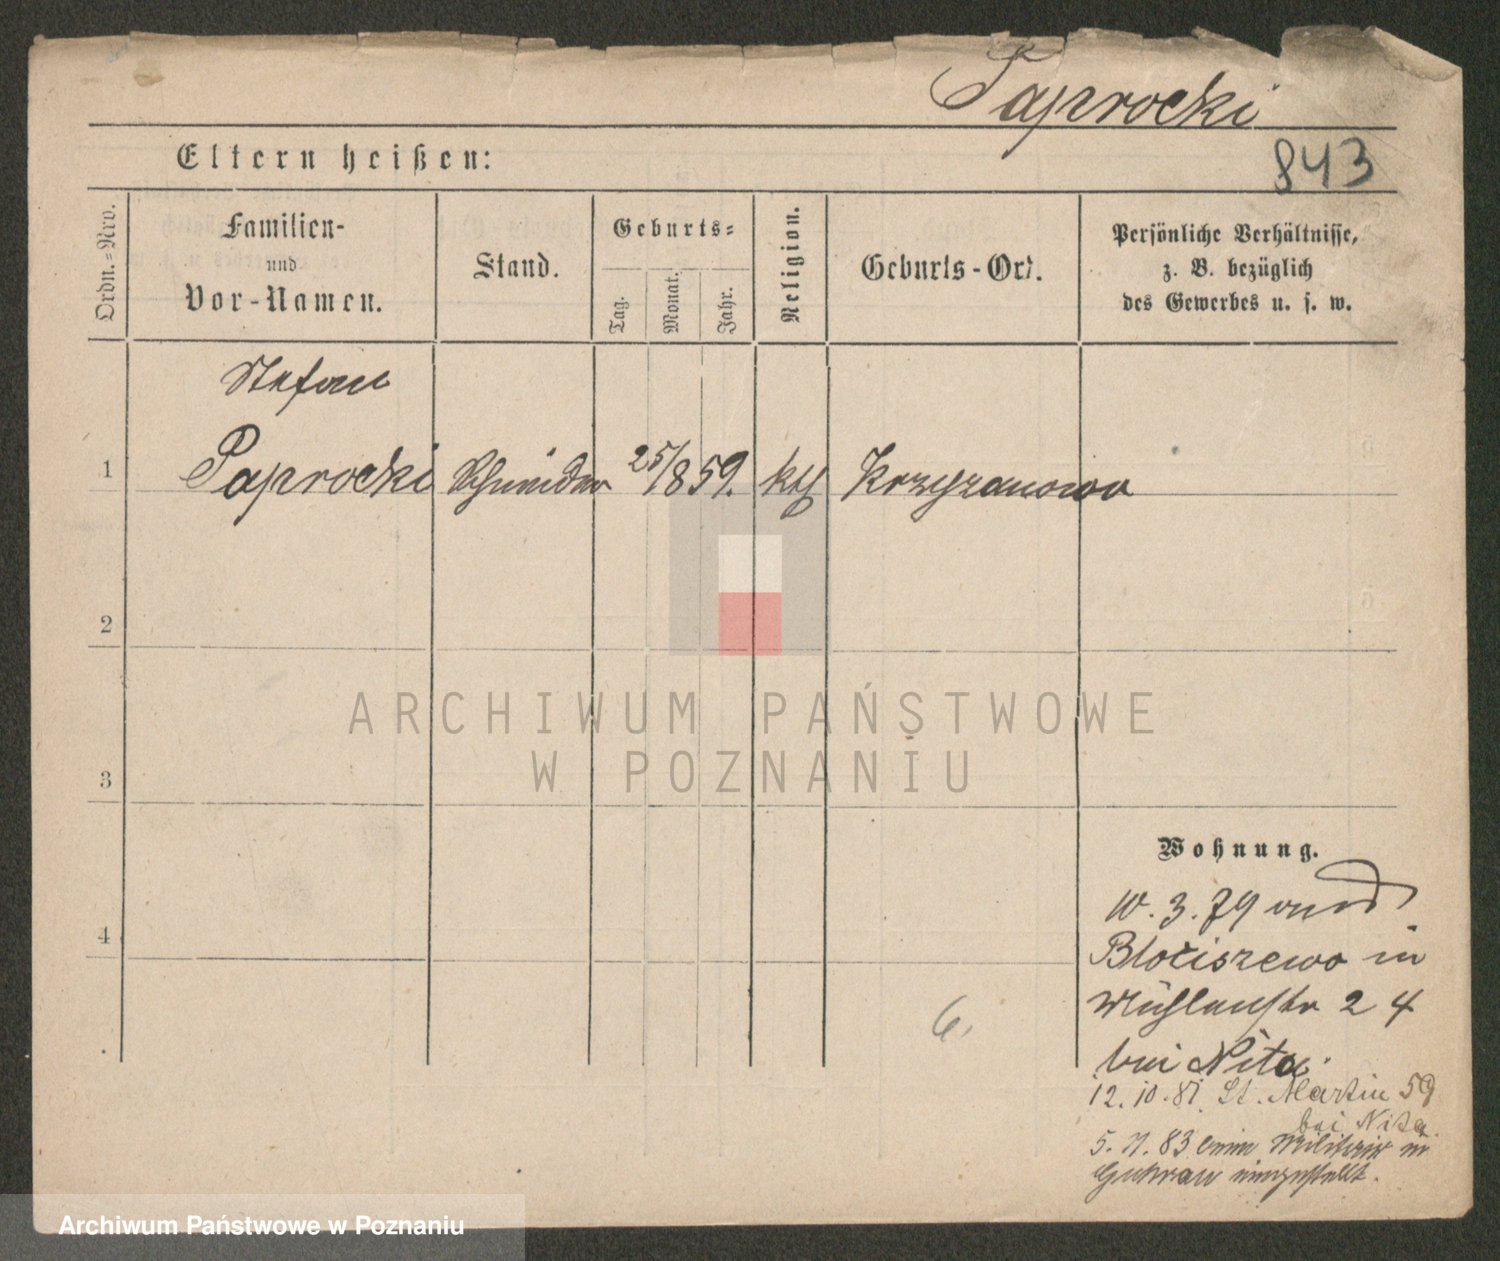 Paprocki
Eltern heißen:
843
Ordn.-Nro.
Familien-
und
Vor-Namen.
Stand.
Geburts-
Tag.
Monat.
Jahr.
Religion.
Geburts-Ort.
Persönliche Verhältnisse,
z. B. bezüglich
des Gewerbes u. s. w.
Stefan
1 Paprocki Schneider 25/8 59. kth Krzyzanowo
2
3
4
ARCHIWUM PAŃSTWOWE
W POZNANIU
Wohnung.
10. 3. 79 von
Blociszewo in
Mühlenstr 24
bei Nita.
12. 10. 81. St. Martin 59
bei Nita
5. 11. 83 beim Militair in
Guhrau eingestellt.
6.
Archiwum Państwowe w Poznaniu